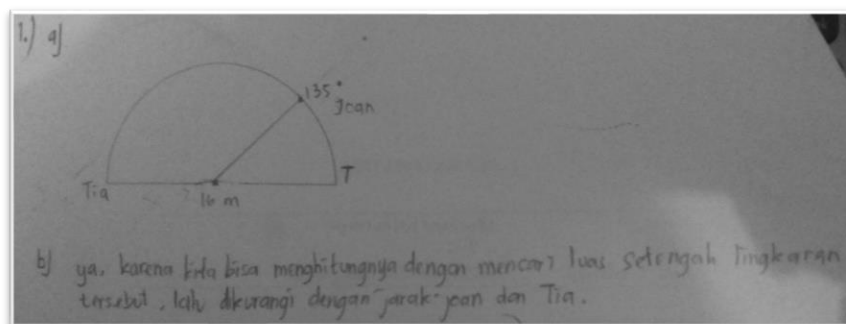 1.) a)
135°
Joan
Tia
T
16 m
b) ya, karena kita bisa menghitungnya dengan mencari luas setengah lingkaran
tersebut, lalu dikurangi dengan jarak joan dan Tia.